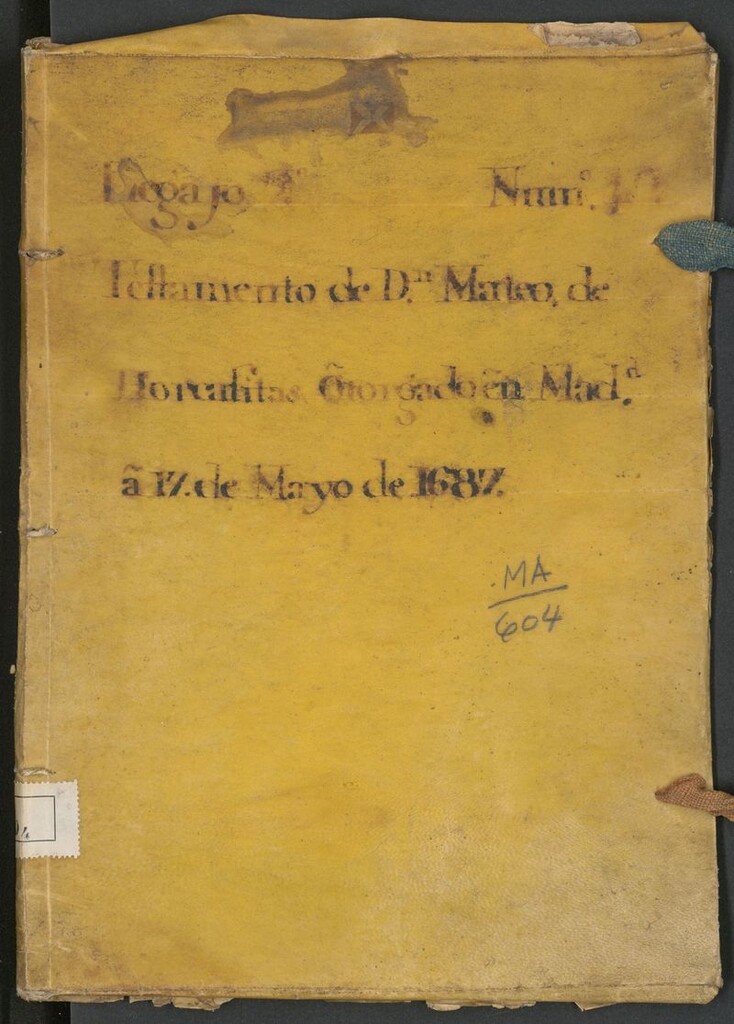 Legajo Num.º
Testamento de D.ⁿ Mateo, de
Horcasitas, Õtorgado en Mad.ᵈ
ã 17. de Mayo de 1687.
MA
604